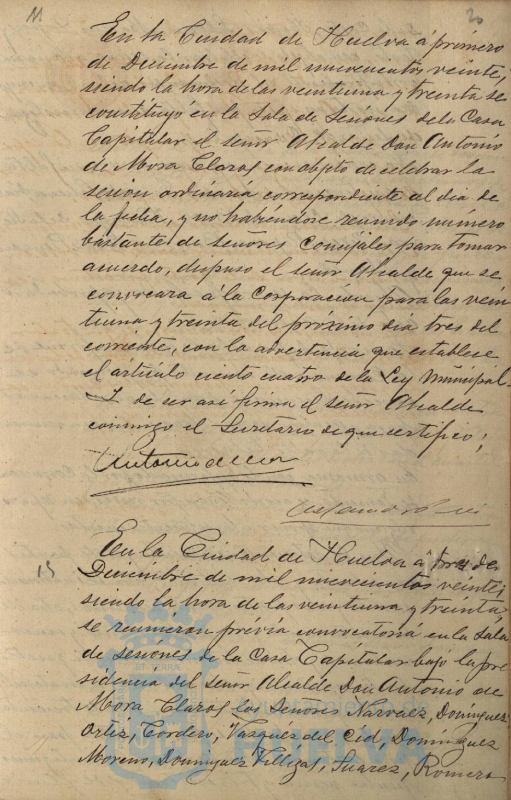 11
20
En la Ciudad de Huelva á primero
de Diciembre de mil nuevecientos veinte,
siendo la hora de las veintiuna y treinta se
constituyó en la Sala de Sesiones de la Casa
Capitular el señor Alcalde Don Antonio
de Mora Claros con objeto de celebrar la
sesion ordinaria correspondiente al dia de
la fecha, y no habiéndose reunido número
bastante de señores Concejales para tomar
acuerdo, dispuso el señor Alcalde que se
convocara á la Corporacion para las vein
tiuna y treinta del próximo dia tres del
corriente, con la advertencia que establece
el artículo ciento cuatro de la Ley Municipal.
Y de ser asi firma el señor Alcalde
conmigo el Secretario de que certifico;
Antonio de Mora
15
En la Ciudad de Huelva á tres de
Diciembre de mil nuevecientos veinte;
siendo la hora de las veintiuna y treinta,
se reunieron prévia convocatoria en la Sala
de Sesiones de la Casa Capitular bajo la pre
sidencia del señor Alcalde Don Antonio de
Mora Claros los Señores Narvaez, Dominguez
Ortiz, Cordero, Vazquez del Cid, Dominguez
Moreno, Dominguez Villegas, Suarez, Romero
HUELVA